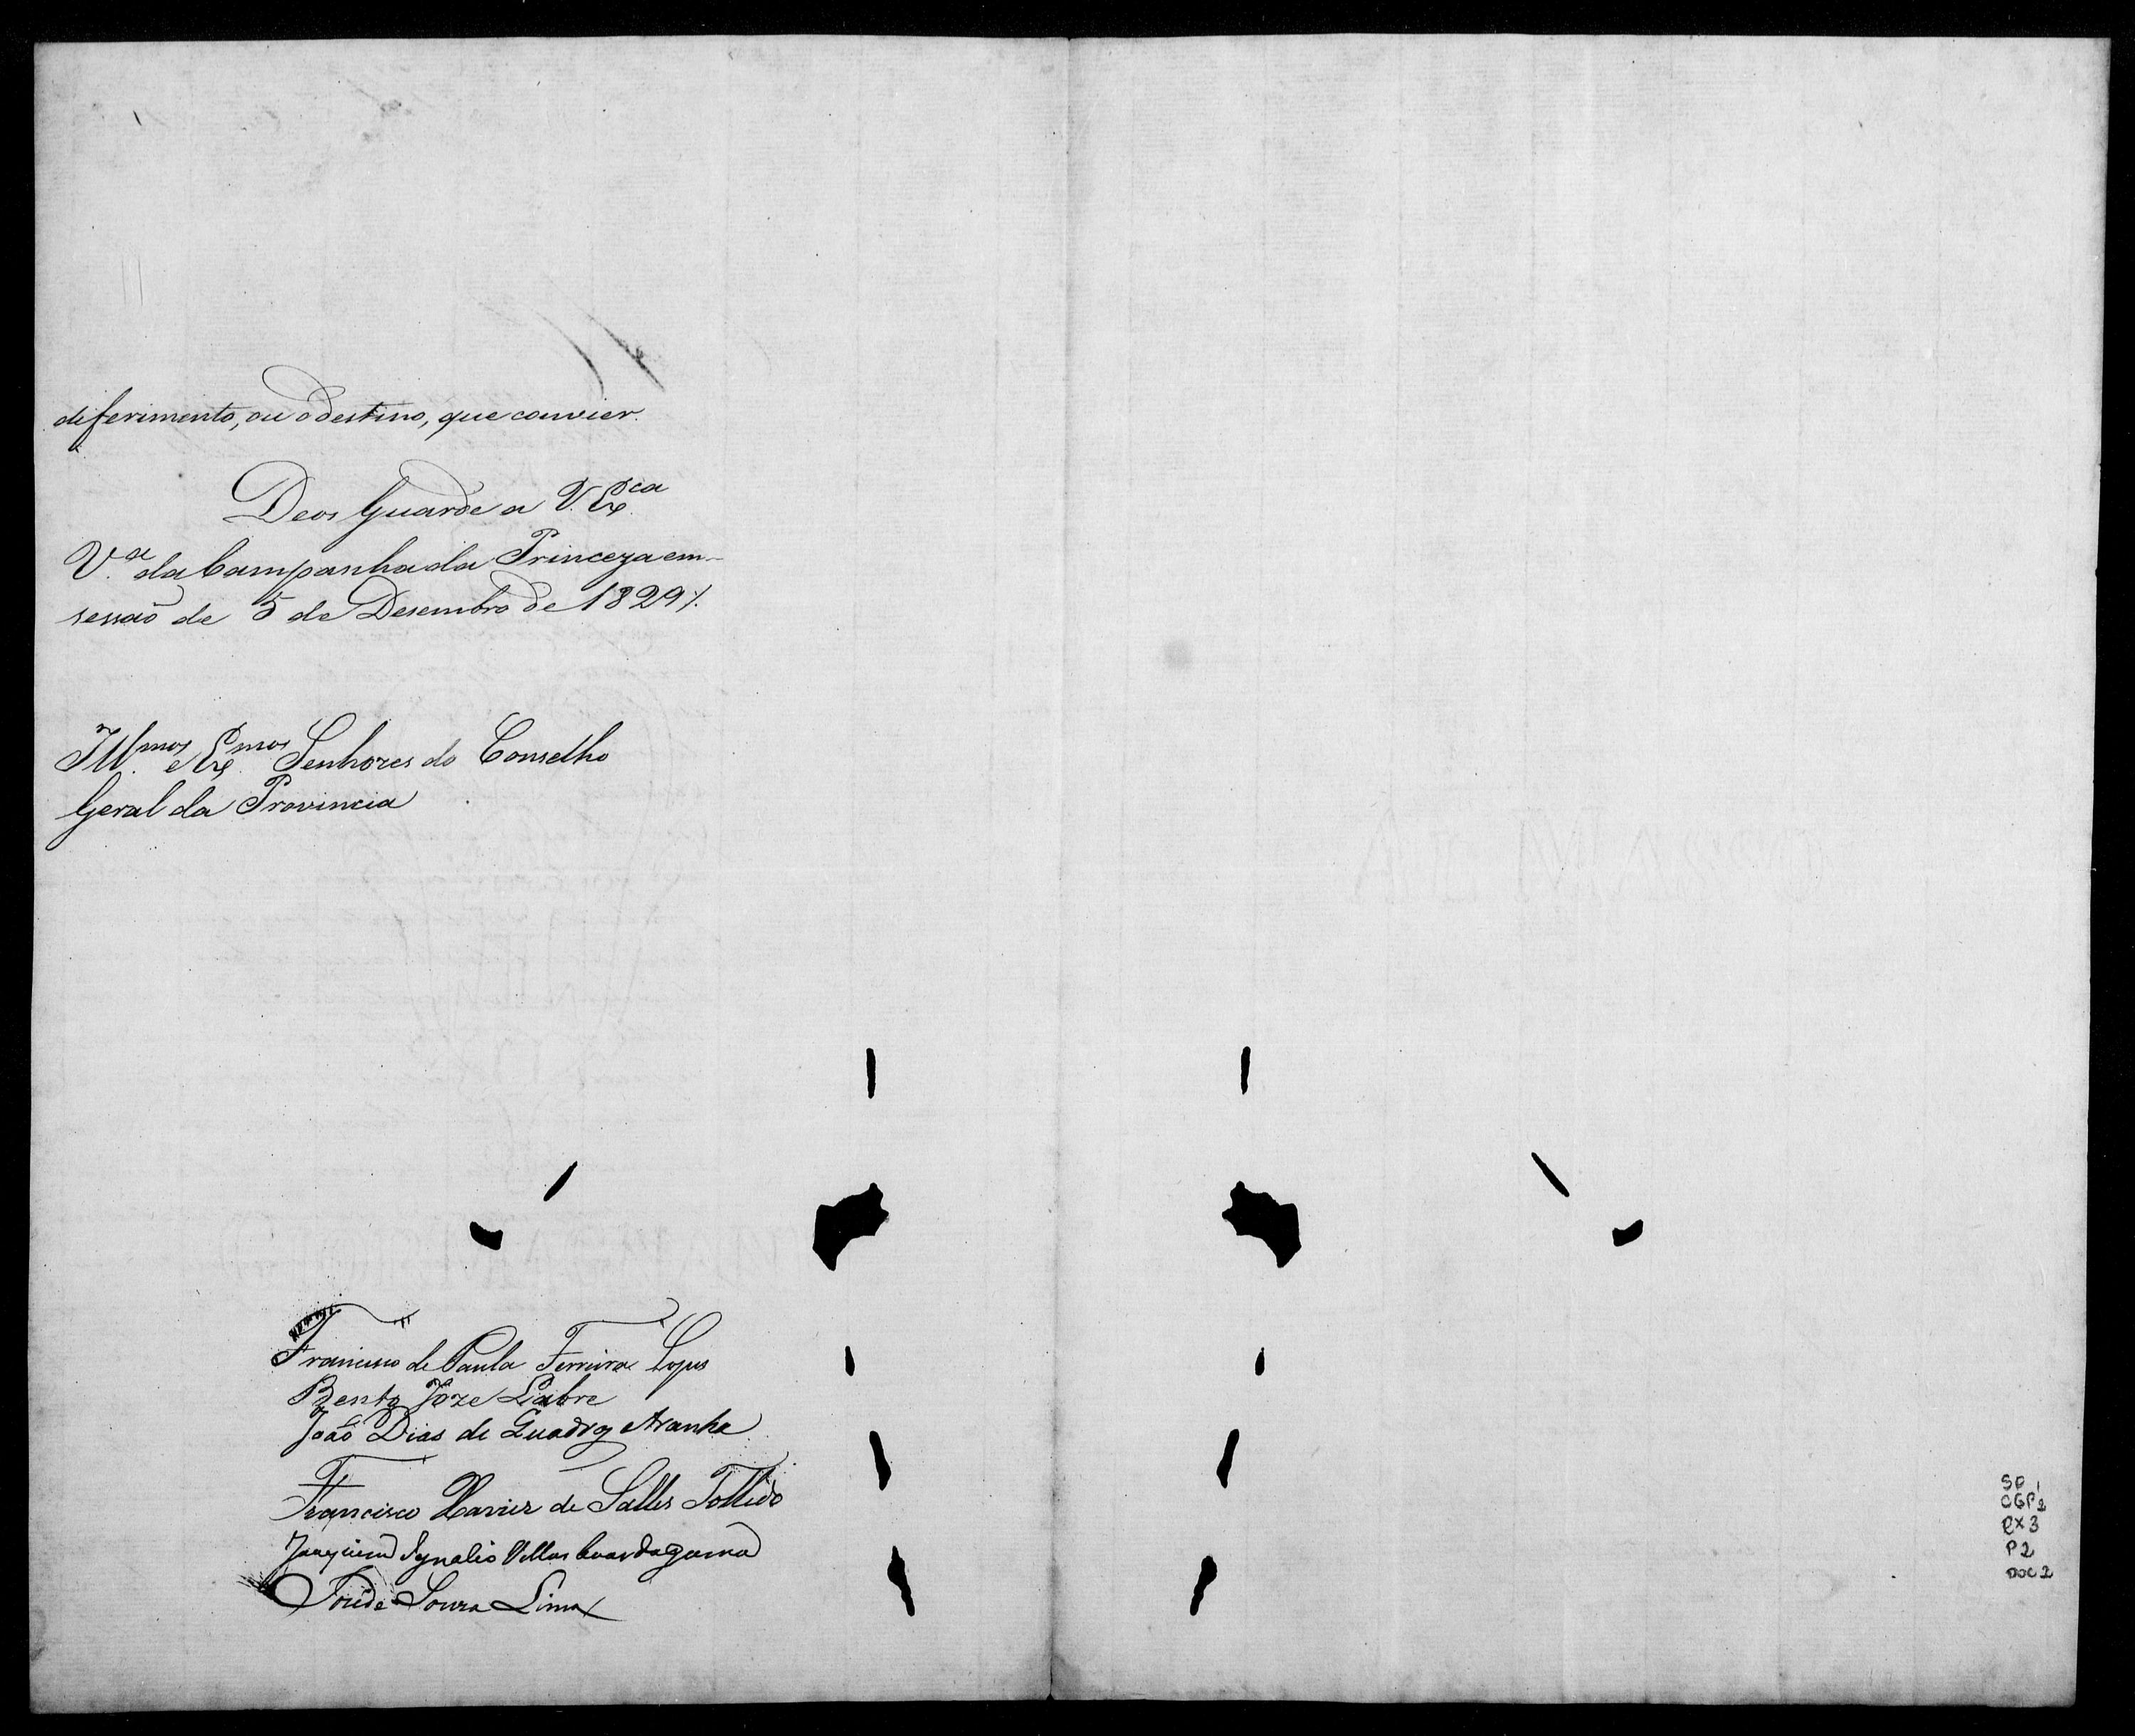 diferimento, ou o destino, que convier.
Deos Guarde a V. Exca
Va da Campanha da Princeza em
sessaõ de 5 de Desembro de 1829
Illmos e Exmos Senhores do Conselho
Geral da Provincia
Francisco de Paula Ferreira Lopes
Bento Joze Labre
Joaõ Dias de Quadros Aranha
Francisco Xavier de Salles Tolledo
Joaquim Ignacio Villas boas da gama
Joze de Souza Lima
SP 1
CGP 2
CX 3
P 2
DOC 2